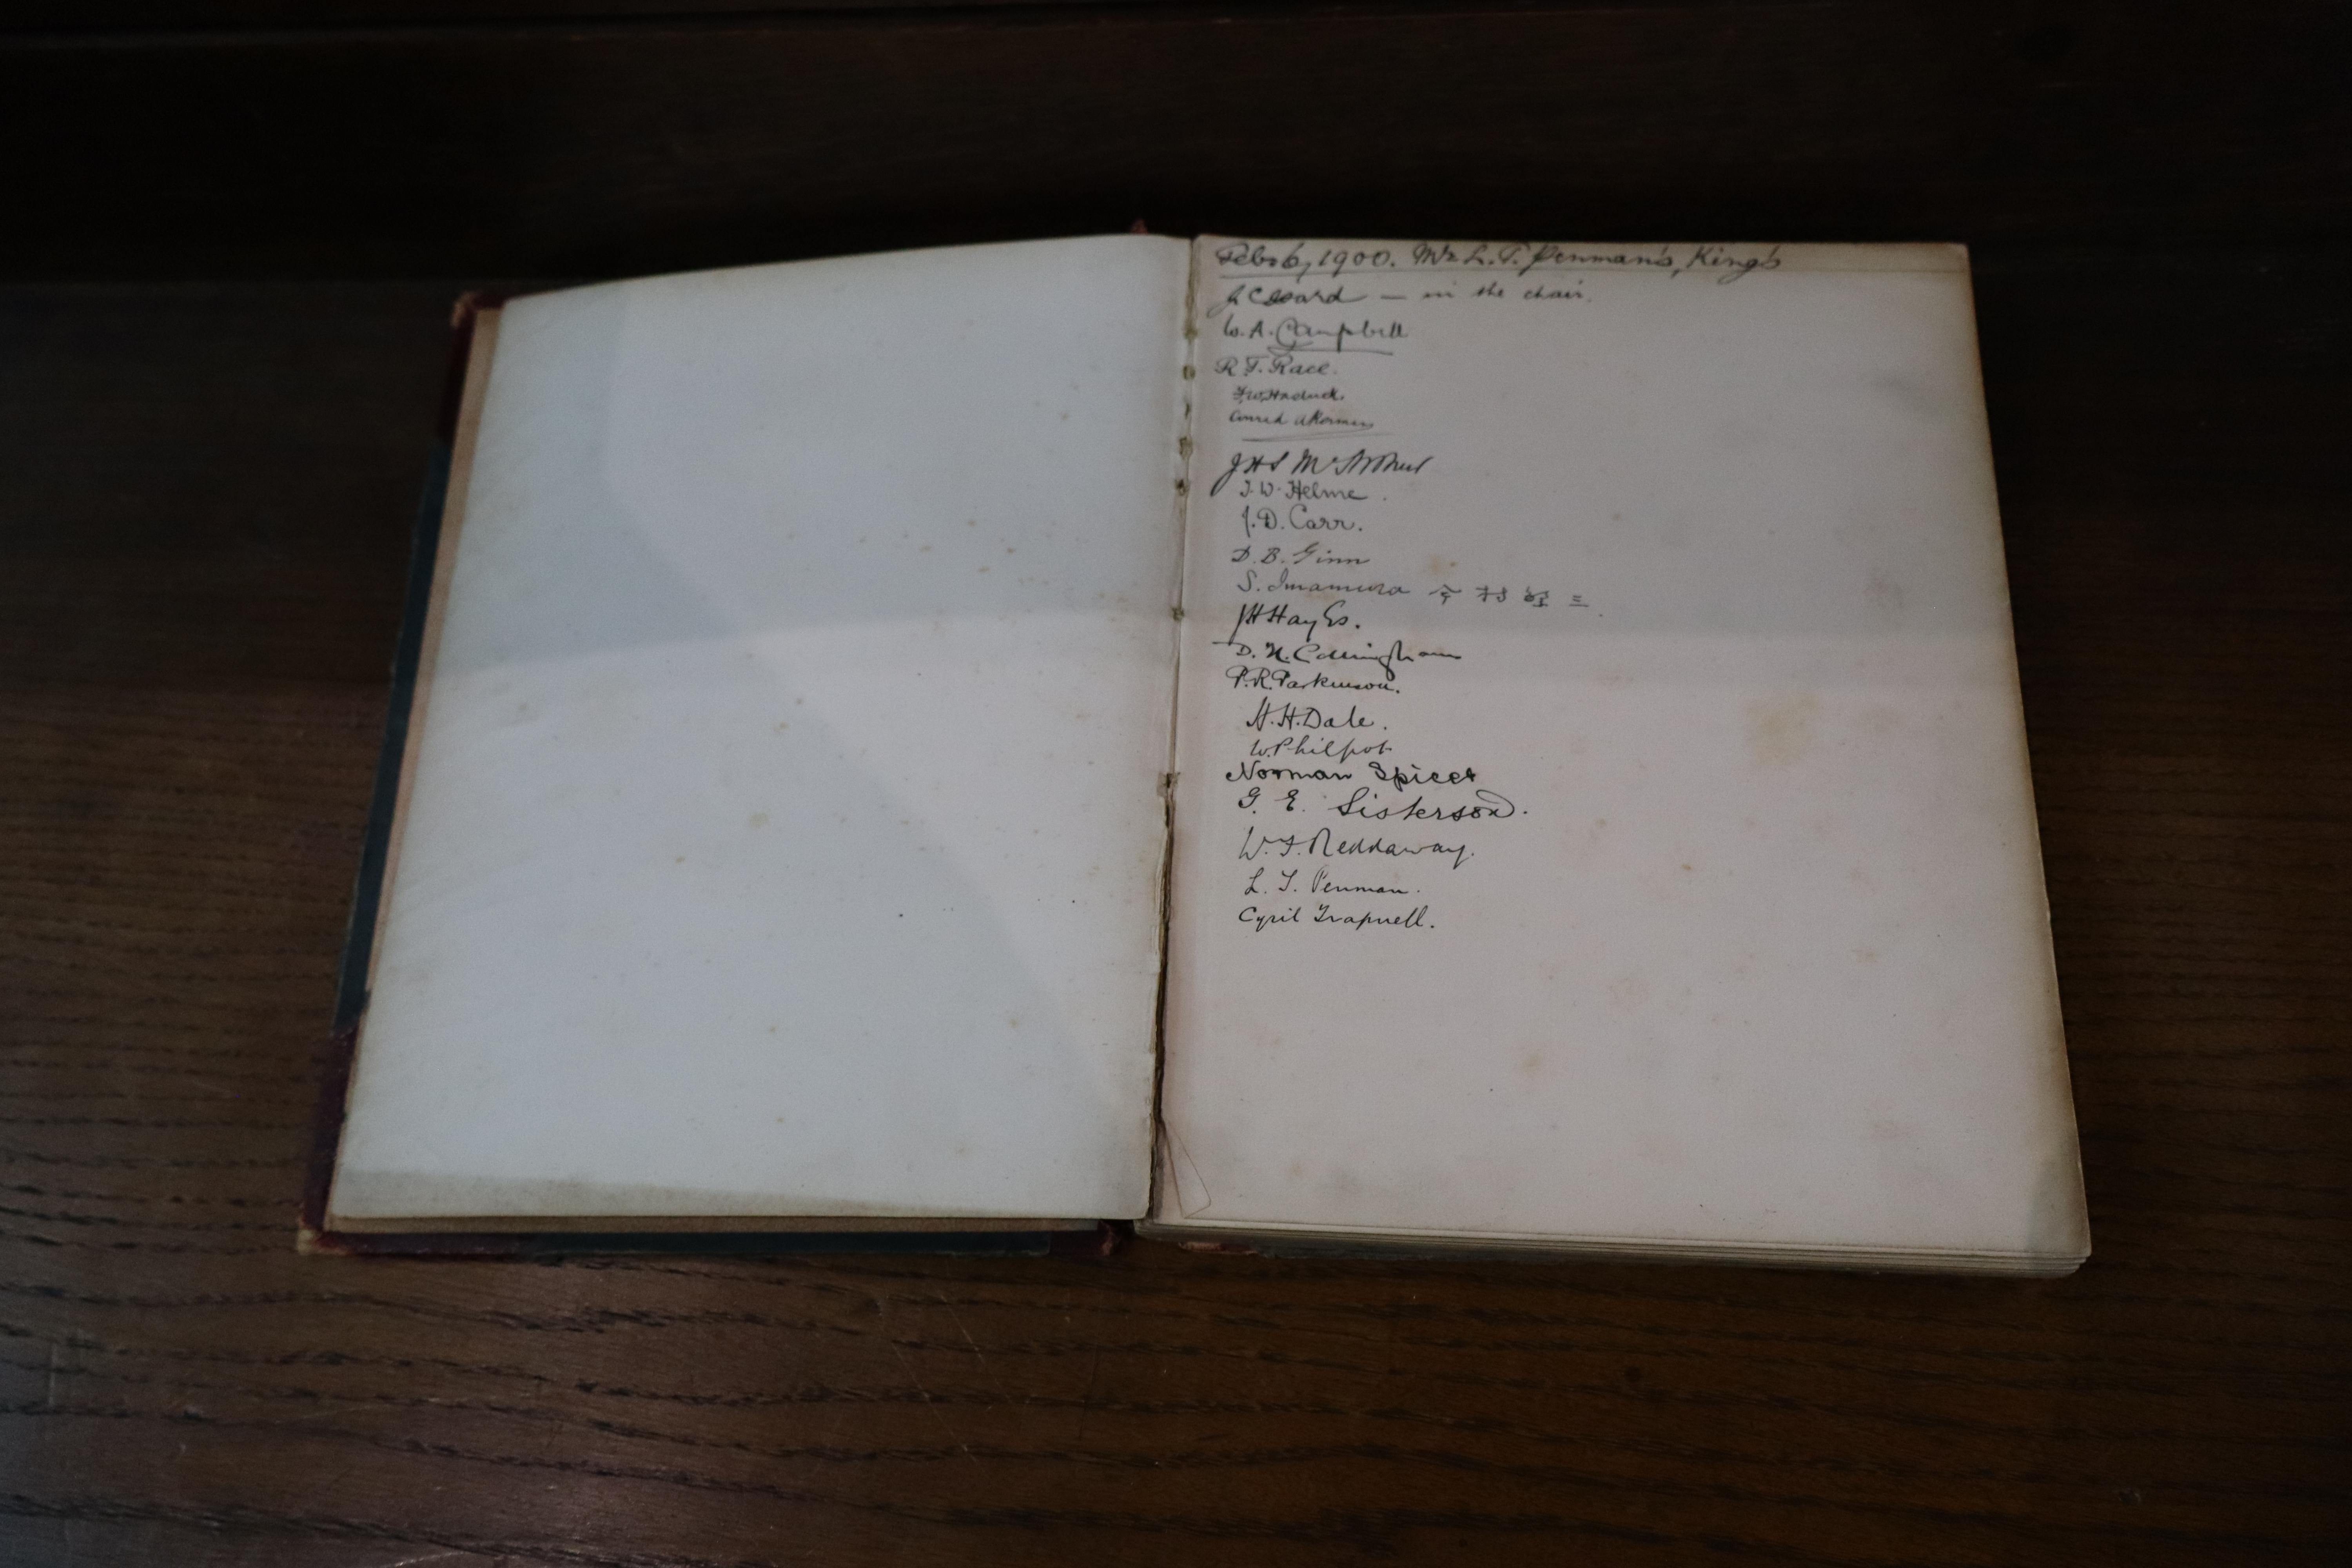 Feb. 6, 1900. Mr L. T. Penman's, King's
Ward — in the chair.
W. A. Campbell
R. T. Race.
J H S McArthur
J. W. Helme.
J. D. Carr.
D. B. Ginn
S. Imamura 今村 三
J H Hayes.
D. H.
P. R. Parkinson.
H. H. Dale.
W. Philpot
Norman Spicer
G. E. Sisterson.
W. F. Reddaway.
L. T. Penman.
Cyril Trapnell.